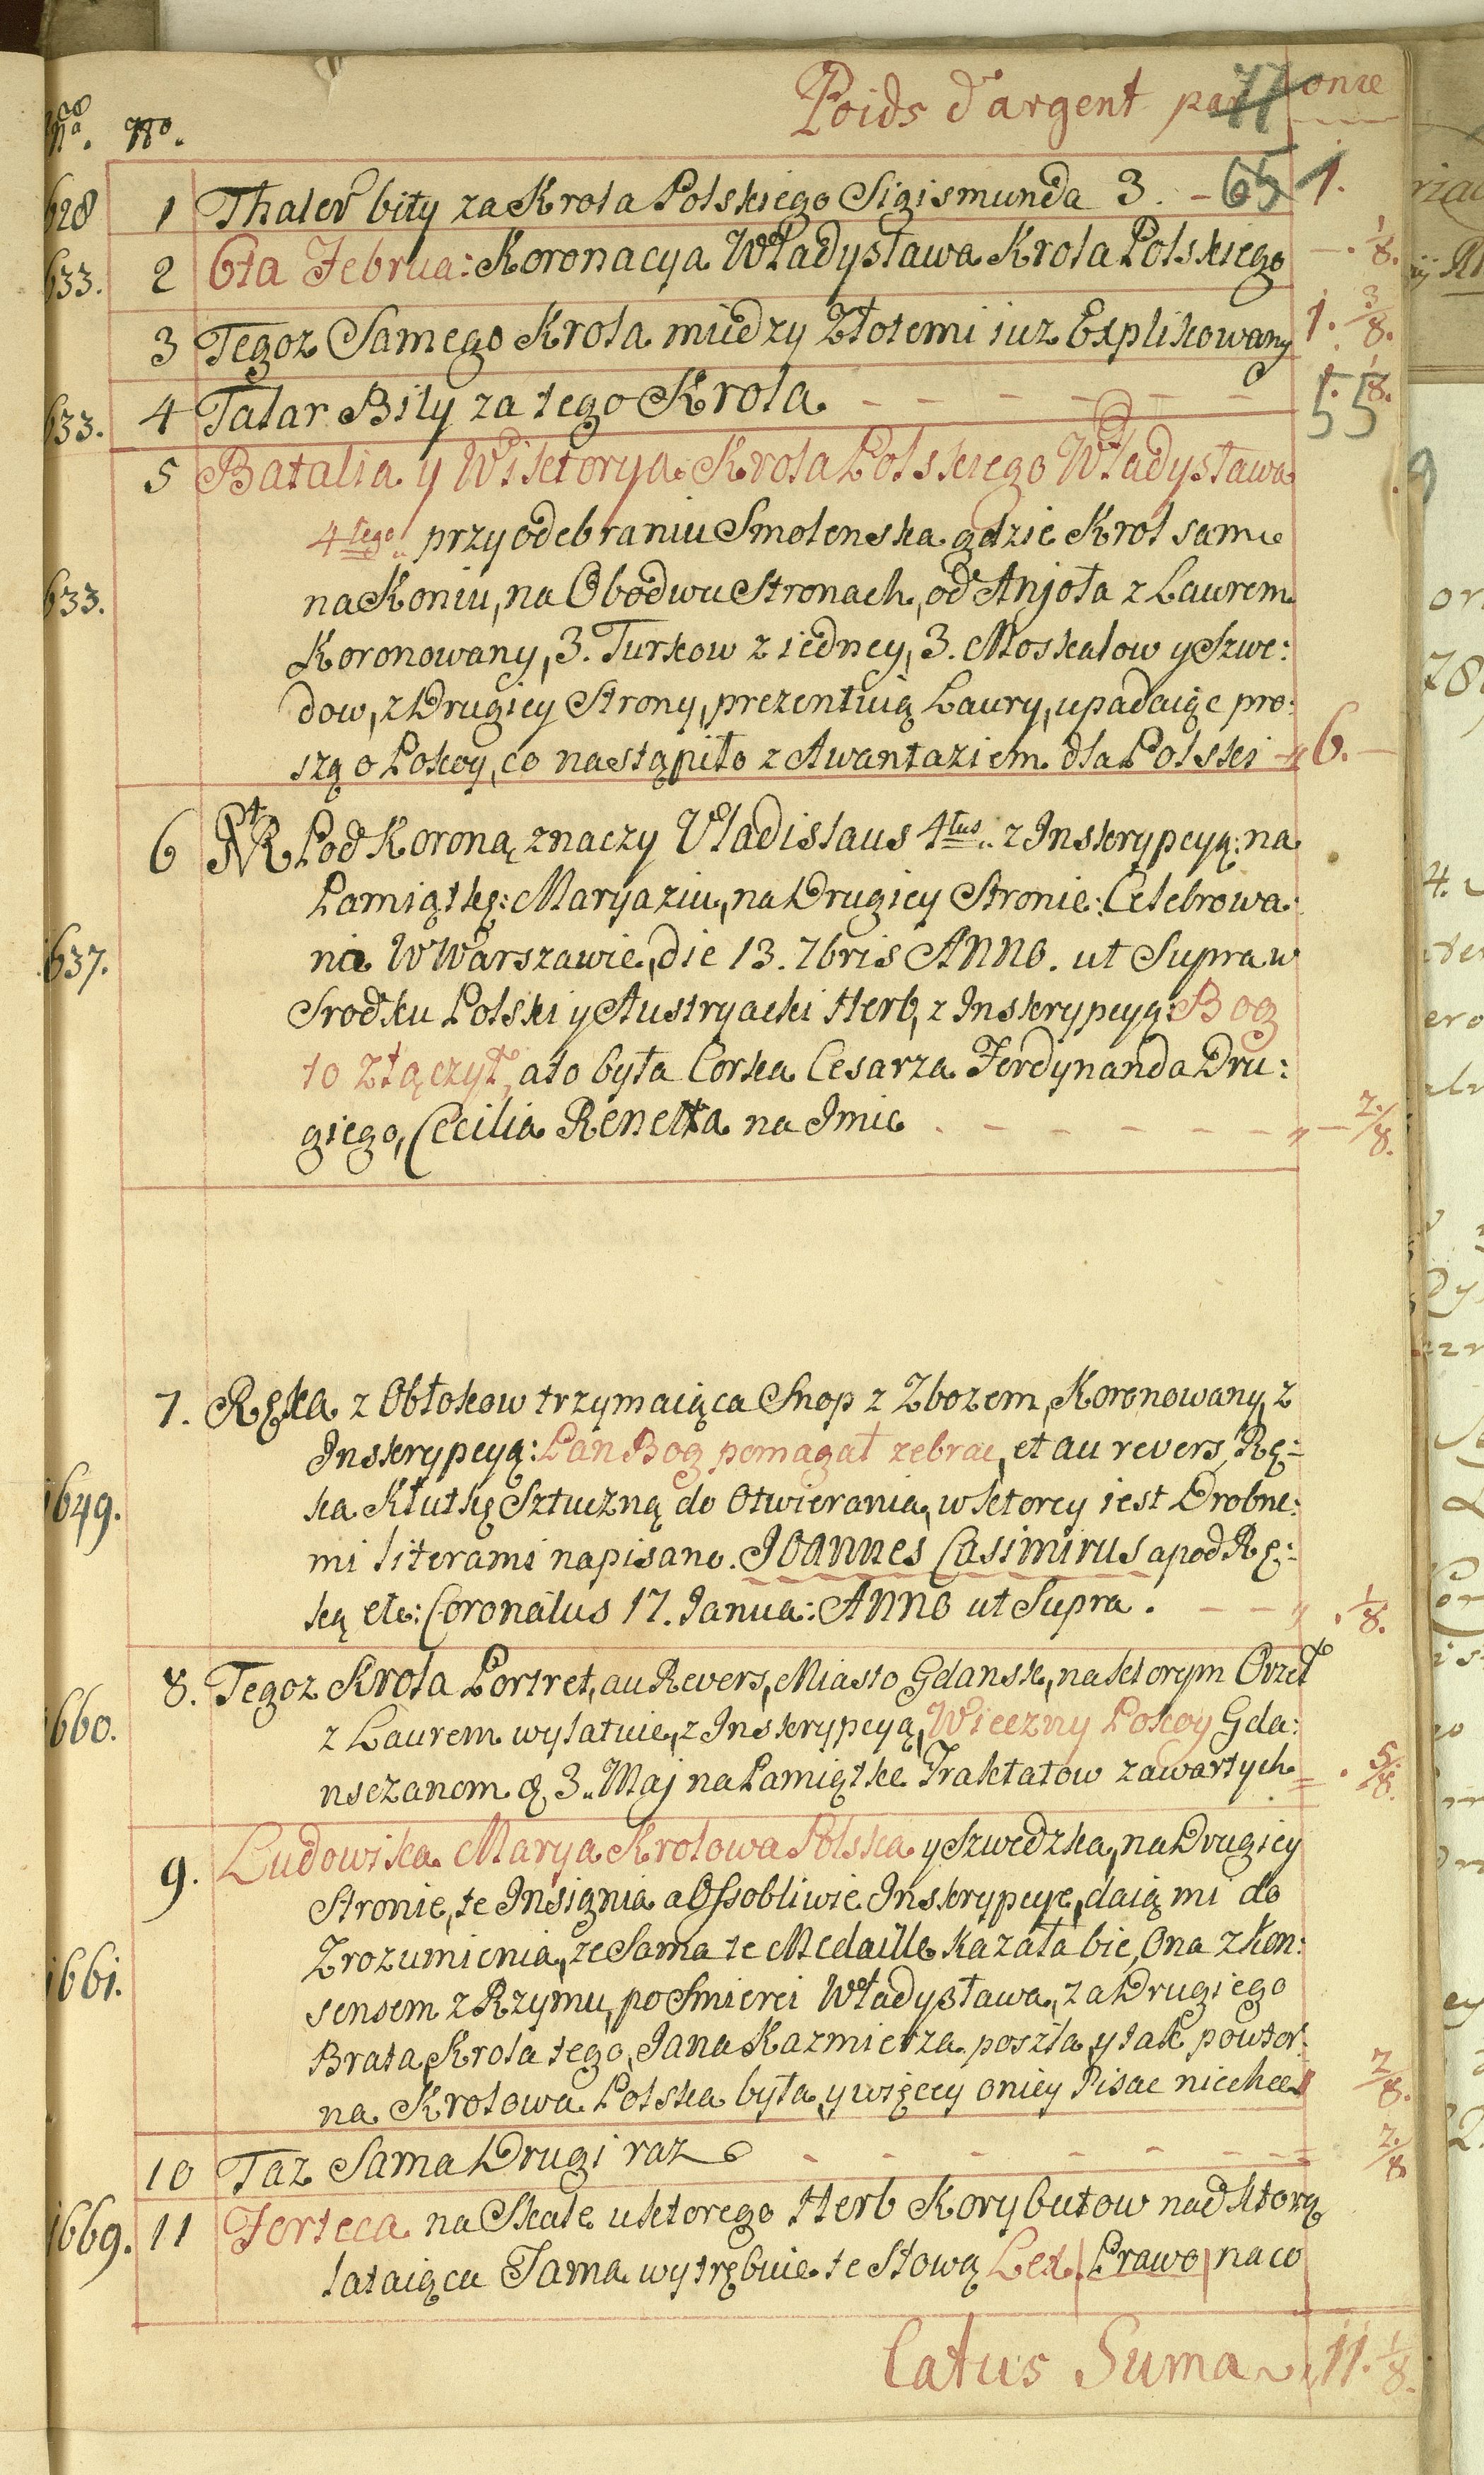 Poids d'argent par onze
77
Ao. No.
628 1 Thaler bity za Krola Polskiego Sigismunda 3. - 65 1.
633. 2 6ta Februa: Koronacya Władysława Krola Polskiego - . 1/8.
3 Tegoz Samego Krola między Złotemi iuz Explikowany 1. 3/8.
633. 4 Talar Bity za tego Krola - - - - - - - 1. 1/8.
55
5 Batalia y Wiktorya Krola Polskiego Władysława
4tego przy odebraniu Smolenska gdzie Krol sam
633. na Koniu, na Obodwu Stronach, od Anjoła z Laurem
Koronowany, 3. Turkow z iedney, 3. Moskalow y Szwe:
dow, z Drugiey Strony, prezentuią Laury, upadaiąc pro:
szą o Pokoy, co nastąpiło z Awantaziem dla Polski 6. -
6 Pod Koroną znaczy Vladislaus 4tus z Inskrypcyą: na
Pamiątkę: Maryaziu, na Drugiey Stronie: Celebrowa:
637. nia W Warszawie, die 13. 7bris ANNO. ut Supra w
Srodku Polski y Austryacki Herb, z Inskrypcyą: Bog
to złączył, a to była Corka Cesarza Ferdynanda Dru:
giego, Cecilia Renetta na Imie . - - - - - - - 2/8.
7. Ręka z Obłokow trzymaiąca Snop z Zbozem, Koronowany, z
Inskrypcyą: Pan Bog pomagał zebrac, et au revers, Rę:
1649. ka Kłutkę Sztuczną do Otwierania, w ktorey iest Drobne:
mi literami napisano. Joannes Casimirus a pod Rę:
ką etc: Coronatus 17. Janua: ANNO ut Supra. - - . 1/8.
8. Tegoz Krola Portret, au Revers, Miasto Gdansk, na ktorym Orzeł
1660. z Laurem wylatuie, z Inskrypcyą, Wieczny Pokoy Gda:
nsczanom d. 3. Maj na Pamiątke Traktatow zawartych = . 5/8.
9. Ludowika Marya Krolowa Polska y Szwedzka, na Drugiey
Stronie, te Insignia a Ossobliwie Inskrypcye, daią mi do
Zrozumienia, ze Sama te Medaille kazała bic, Ona z kon:
1661. sensem z Rzymu, po Smierci Władysława, za Drugiego
Brata Krola tego, Jana Kazmierza poszła, y tak powtor:
na Krolowa Polska była, y więcey o niey Pisac niechce 2/8.
10 Taz Sama Drugi raz - - - - - - - = 2/8
1669. 11 Forteca na Skale u ktorego Herb Korybutow nad ktorą
lataiąca Fama wytrębuie te Słową Lex | Prawo | na co
Latus Suma 11. 1/8.